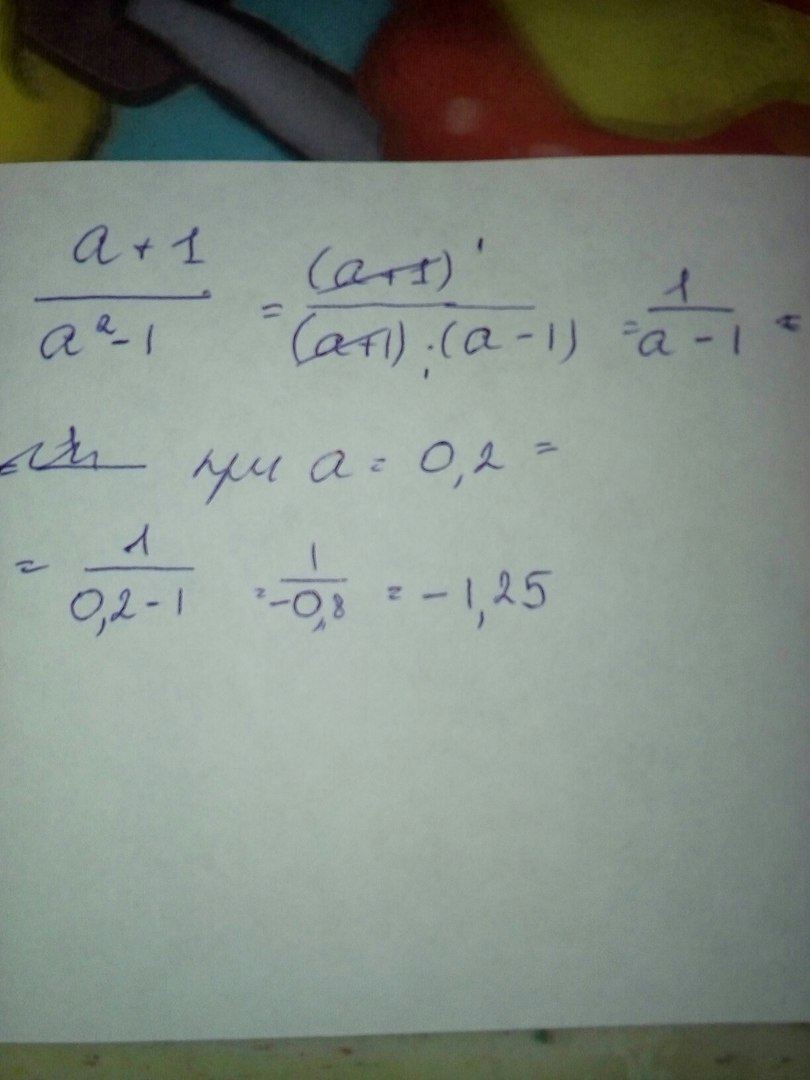 a + 1 / a² - 1 = (a+1) 1 / (a+1) · (a - 1) 1 = 1 / a - 1 =
при a = 0,2 =
= 1 / 0,2 - 1 = 1 / -0,8 = - 1,25